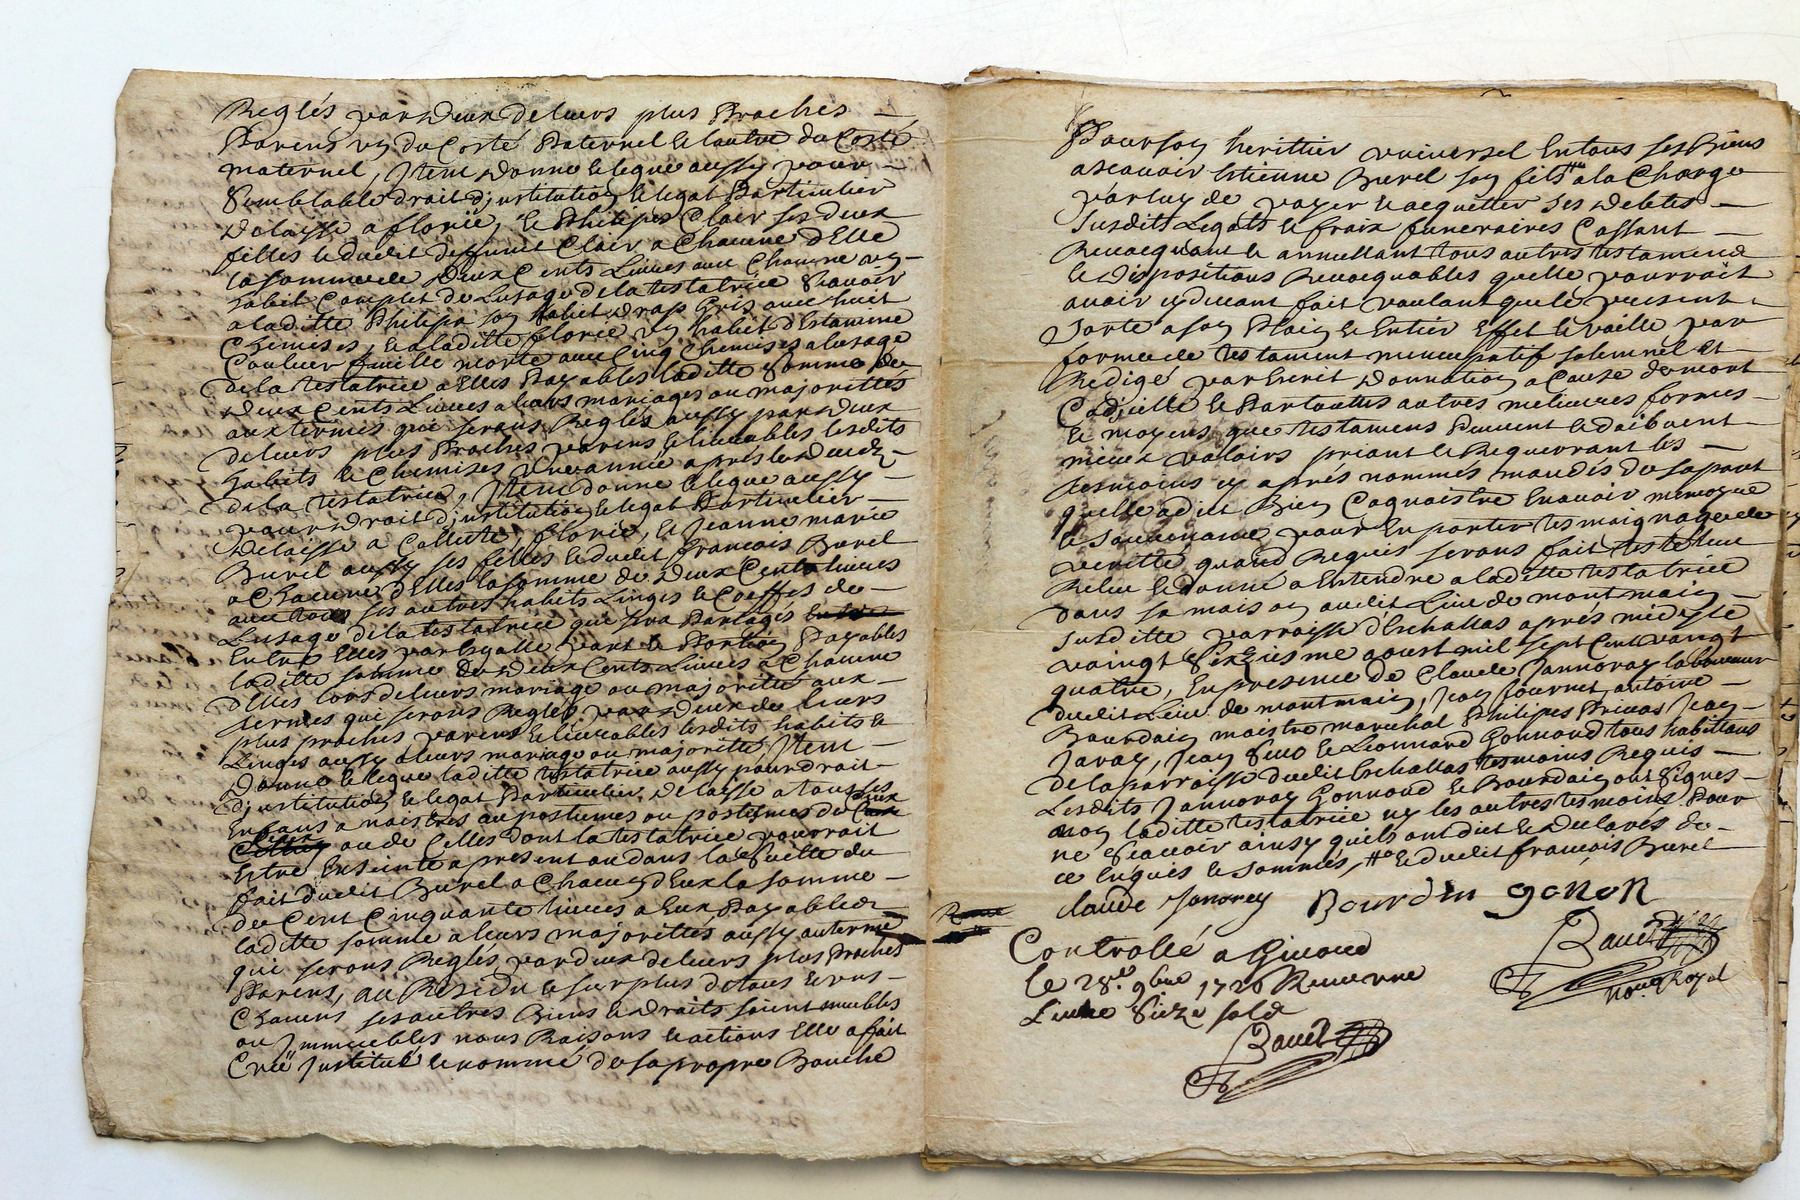 Reglés par deux de leurs plus Proches
Parens un du Costé Paternel et lautre du Costé
maternel, Item donne et legue aussy pour
Semblable droit d'institution et legat Particulier
delaisse a florie, et Philipes Clair ses deux
filles et dudit deffunit Clair a Chacune d'Elle
la somme de deux Cents Livres avec Chacune un
habit Complet de Lusage de la testatrice Scavoir
a laditte Philipes son habit drap Gris avec huit
Chemises, et a laditte florie un habit d'Estamine
Couleur feuille morte avec Cinq Chemises a lusage
de la testatrice a Elles Payables laditte Somme de
deux Cents Livres a leurs mariages ou majorittés
aux termes qui serons Reglés aussy par deux
de leurs plus Proches parens et livrables lesdits
habits et Chemises une année apres le deces
de la testatrice, Item donne et legue aussy
pour droit d'institution et legat Particulier
delaisse a Collette, florie, et Jeanne marie
Burel aussy ses filles et dudit francois Burel
a Chacune d'Elles la somme de deux Cents Livres
avec tous ses autres habits Linges et Coeffes de
Lusage de la testatrice qui sera Partagés
Entre Elles par Esgalle part et Portion Payables
laditte somme de deux Cents Livres a Chacune
d'Elles lors de leurs mariage ou majoritté aux
termes qui serons Reglés par deux de leurs
plus proches parens et livrables lesdits habits et
Linges aussy a leurs mariage ou majoritté, Item
Donne et legue laditte testatrice aussy pour droit
d'institution et legat Particulier delaisse a tous ses
Enfans a naistres ou postumes ou postumes de Ceux
ou de Celles dont la testatrice pourrait
Estre Enseinte a present ou dans la Suitte du
fait dudit Burel a Chacun d'Eux la somme
de Cent Cinquante livres a Eux Payables
laditte somme a leurs majorittés aussy au terme
qui serons Reglés par deux de leurs plus Proches
Parens, au Residu et surplus de tous et uns
Chacuns ses autres Biens et droits soient meubles
ou Immeubles noms Raisons et actions Elle a fait
Créé Institué et nommé de sa propre Bouche
Pour son herittier universel En tous ses Biens
ascavoir Estienne Burel son fils a la Charge
par luy de payer et acquitter ses debtes
susdits Legats et fraix funeraires Cassant
Revocquant et annullant tous autres testamens
et dispositions Revocquables quelle pourrait
avoir cy devant fait voulant que le present
sorte a son Plain et Entier Effet et vaille par
forme de testament nuncupatif solemnel Et
Redigé par Escrit donnation a Cause de mort
Codicille et Par toutes autres melieures formes
et moyens que testamens Peuvent et doibvent
mieux valoirs priant et Requerrant les
tesmoins cy aprés nommés mandés de sa part
quelle a dit Bien Cognoistre En avoir memoyre
et souvenance pour En porter tesmoignage de
veritté quand Requis serons fait testé leu
Releu et donné a Entendre a laditte testatrice
dans sa maison audit Lieu de montmain
susditte parroisse d'Eschallas aprés midy le
vaingt Seizieme aoust mil sept Cent vaingt
quatre, En presence de Claude Jannoray laboureur
dudit Lieu de montmain, Jean Journet, antoine
Bourdain maistre marechal Philipes Privas Jean
Javay, Jean et Leonnard Gonnoud tous habittans
de la parroisse dudit Eschallas tesmoins Requis
Lesdits Jannoray Gonnoud et Bourdain ont Signes
non laditte testatrice ny les autres tesmoins Pour
ne Scavoir ainsy quils ont dit et declarés de
ce Enquis et sommés, et dudit françois Burel
claude Janorey Bourdin gonon
Controllé a Givord
le 28e 9bre 1726 Receu une
Livre Seize sols
Royal